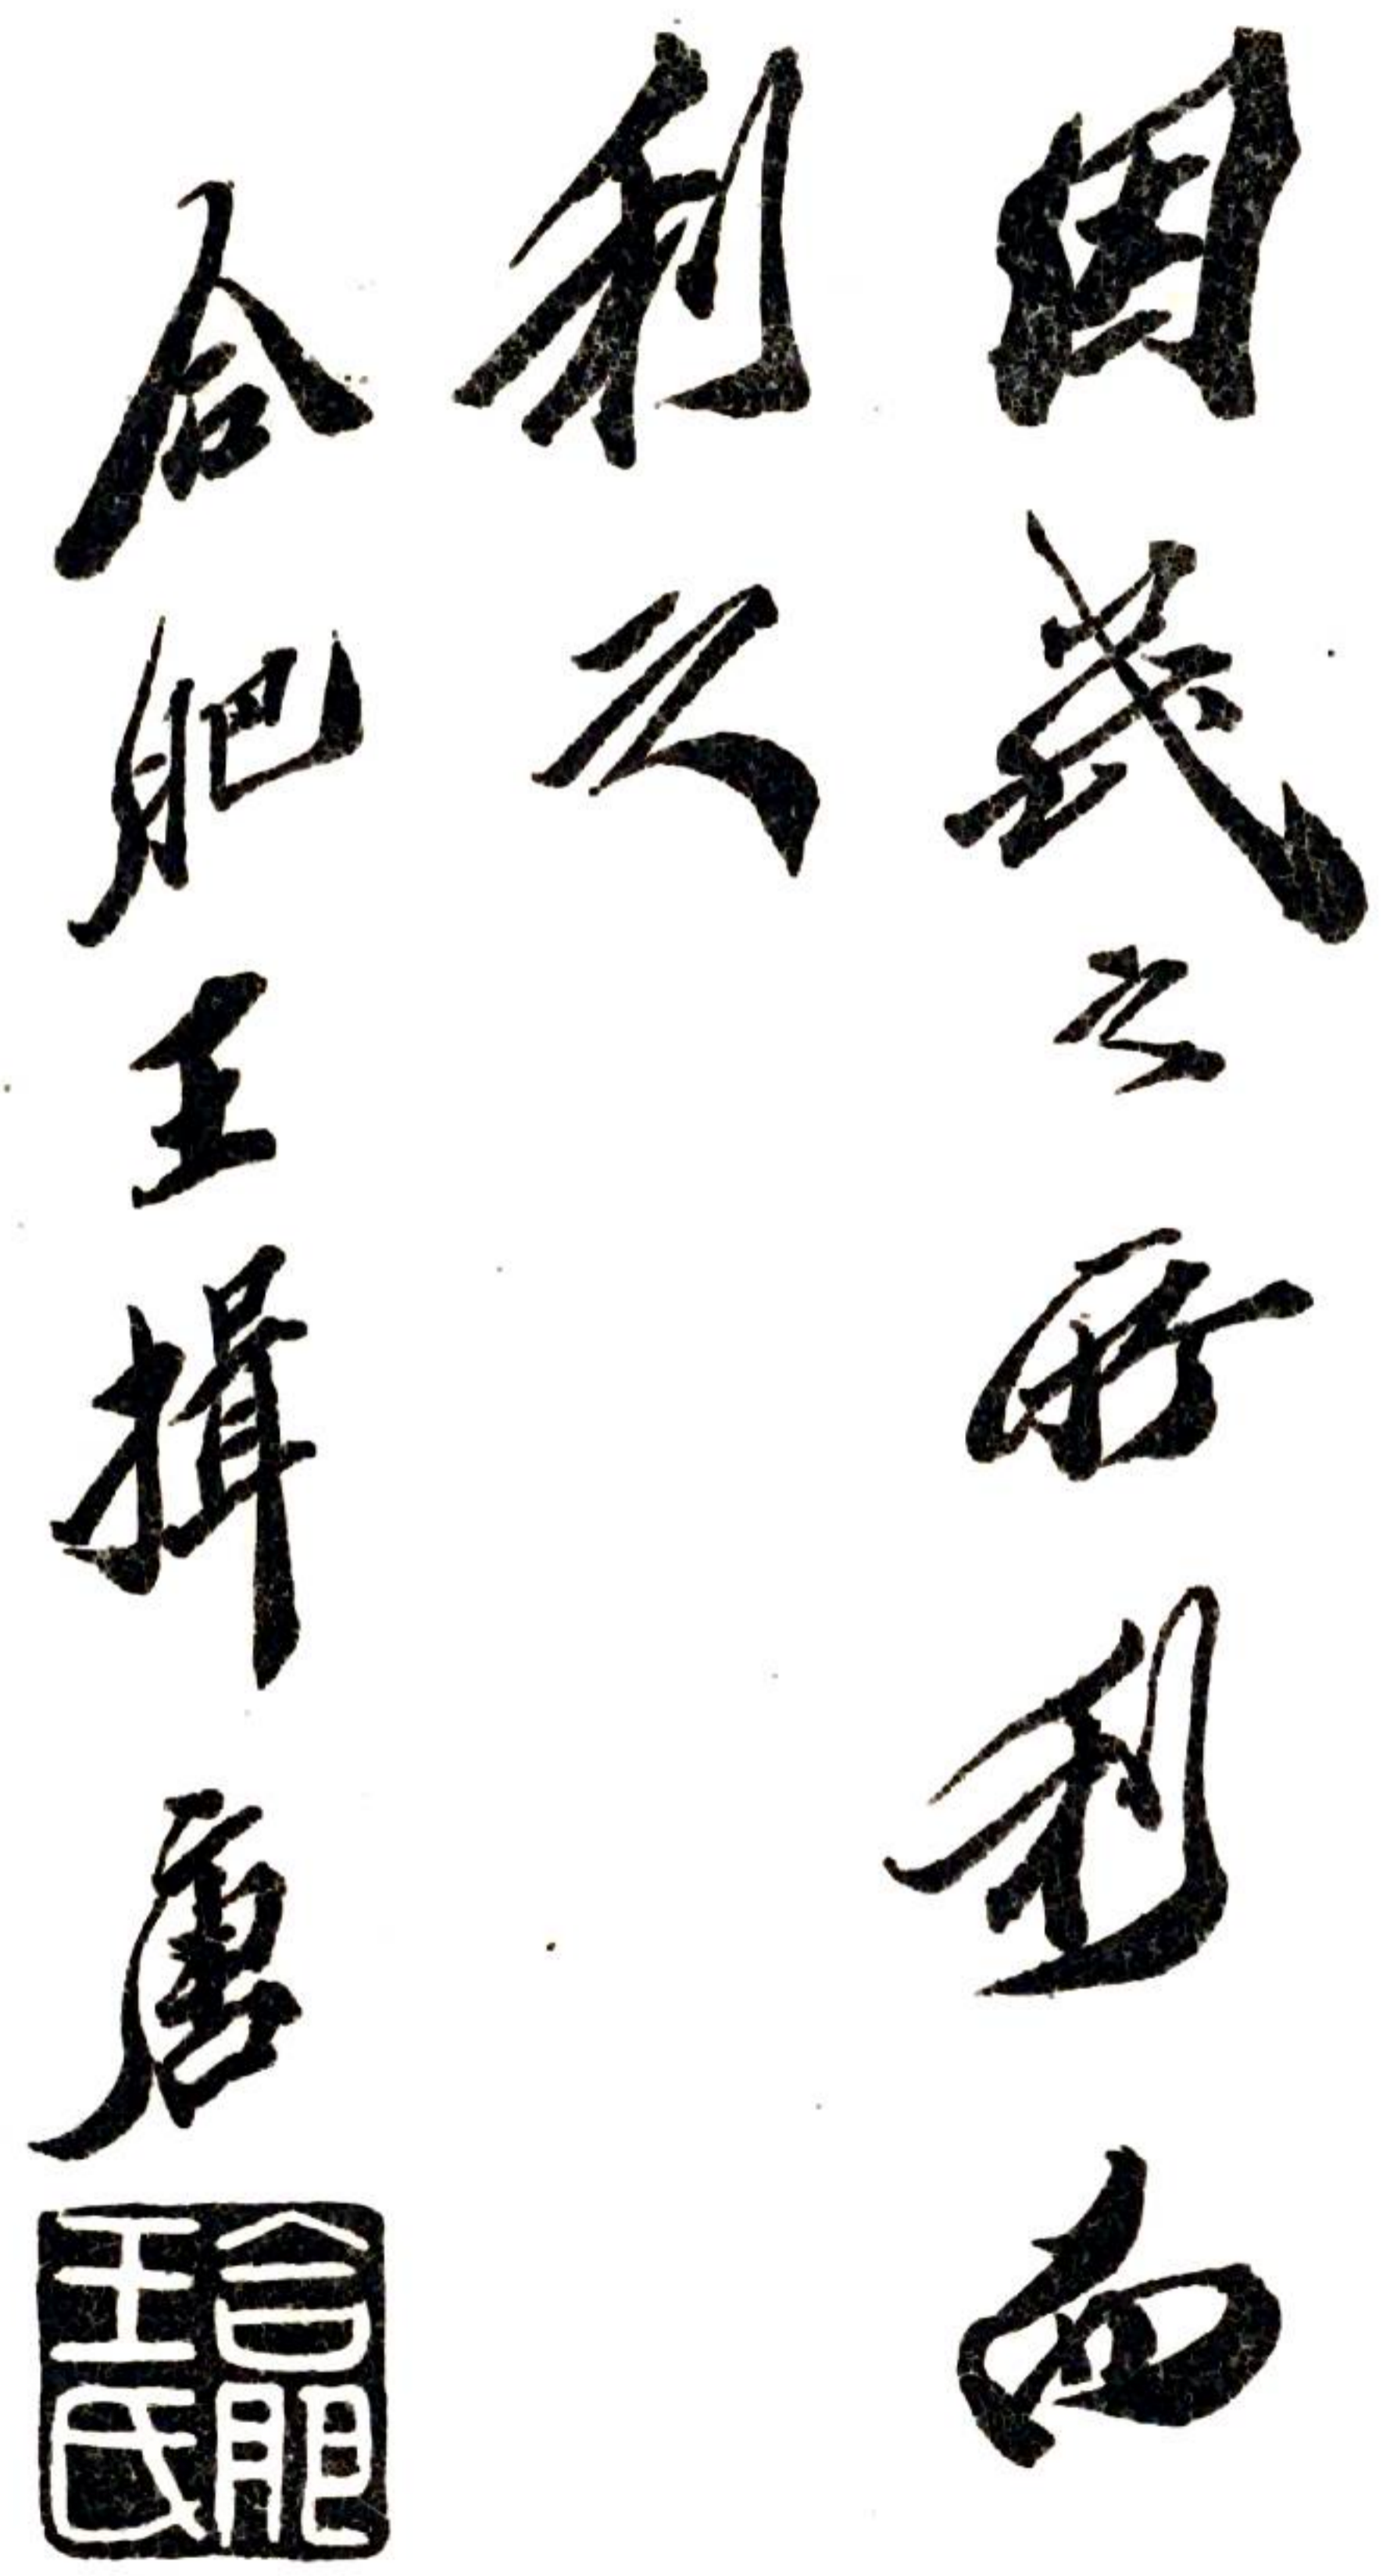 因民之所利而
利之
合肥王揖唐
合肥
王氏